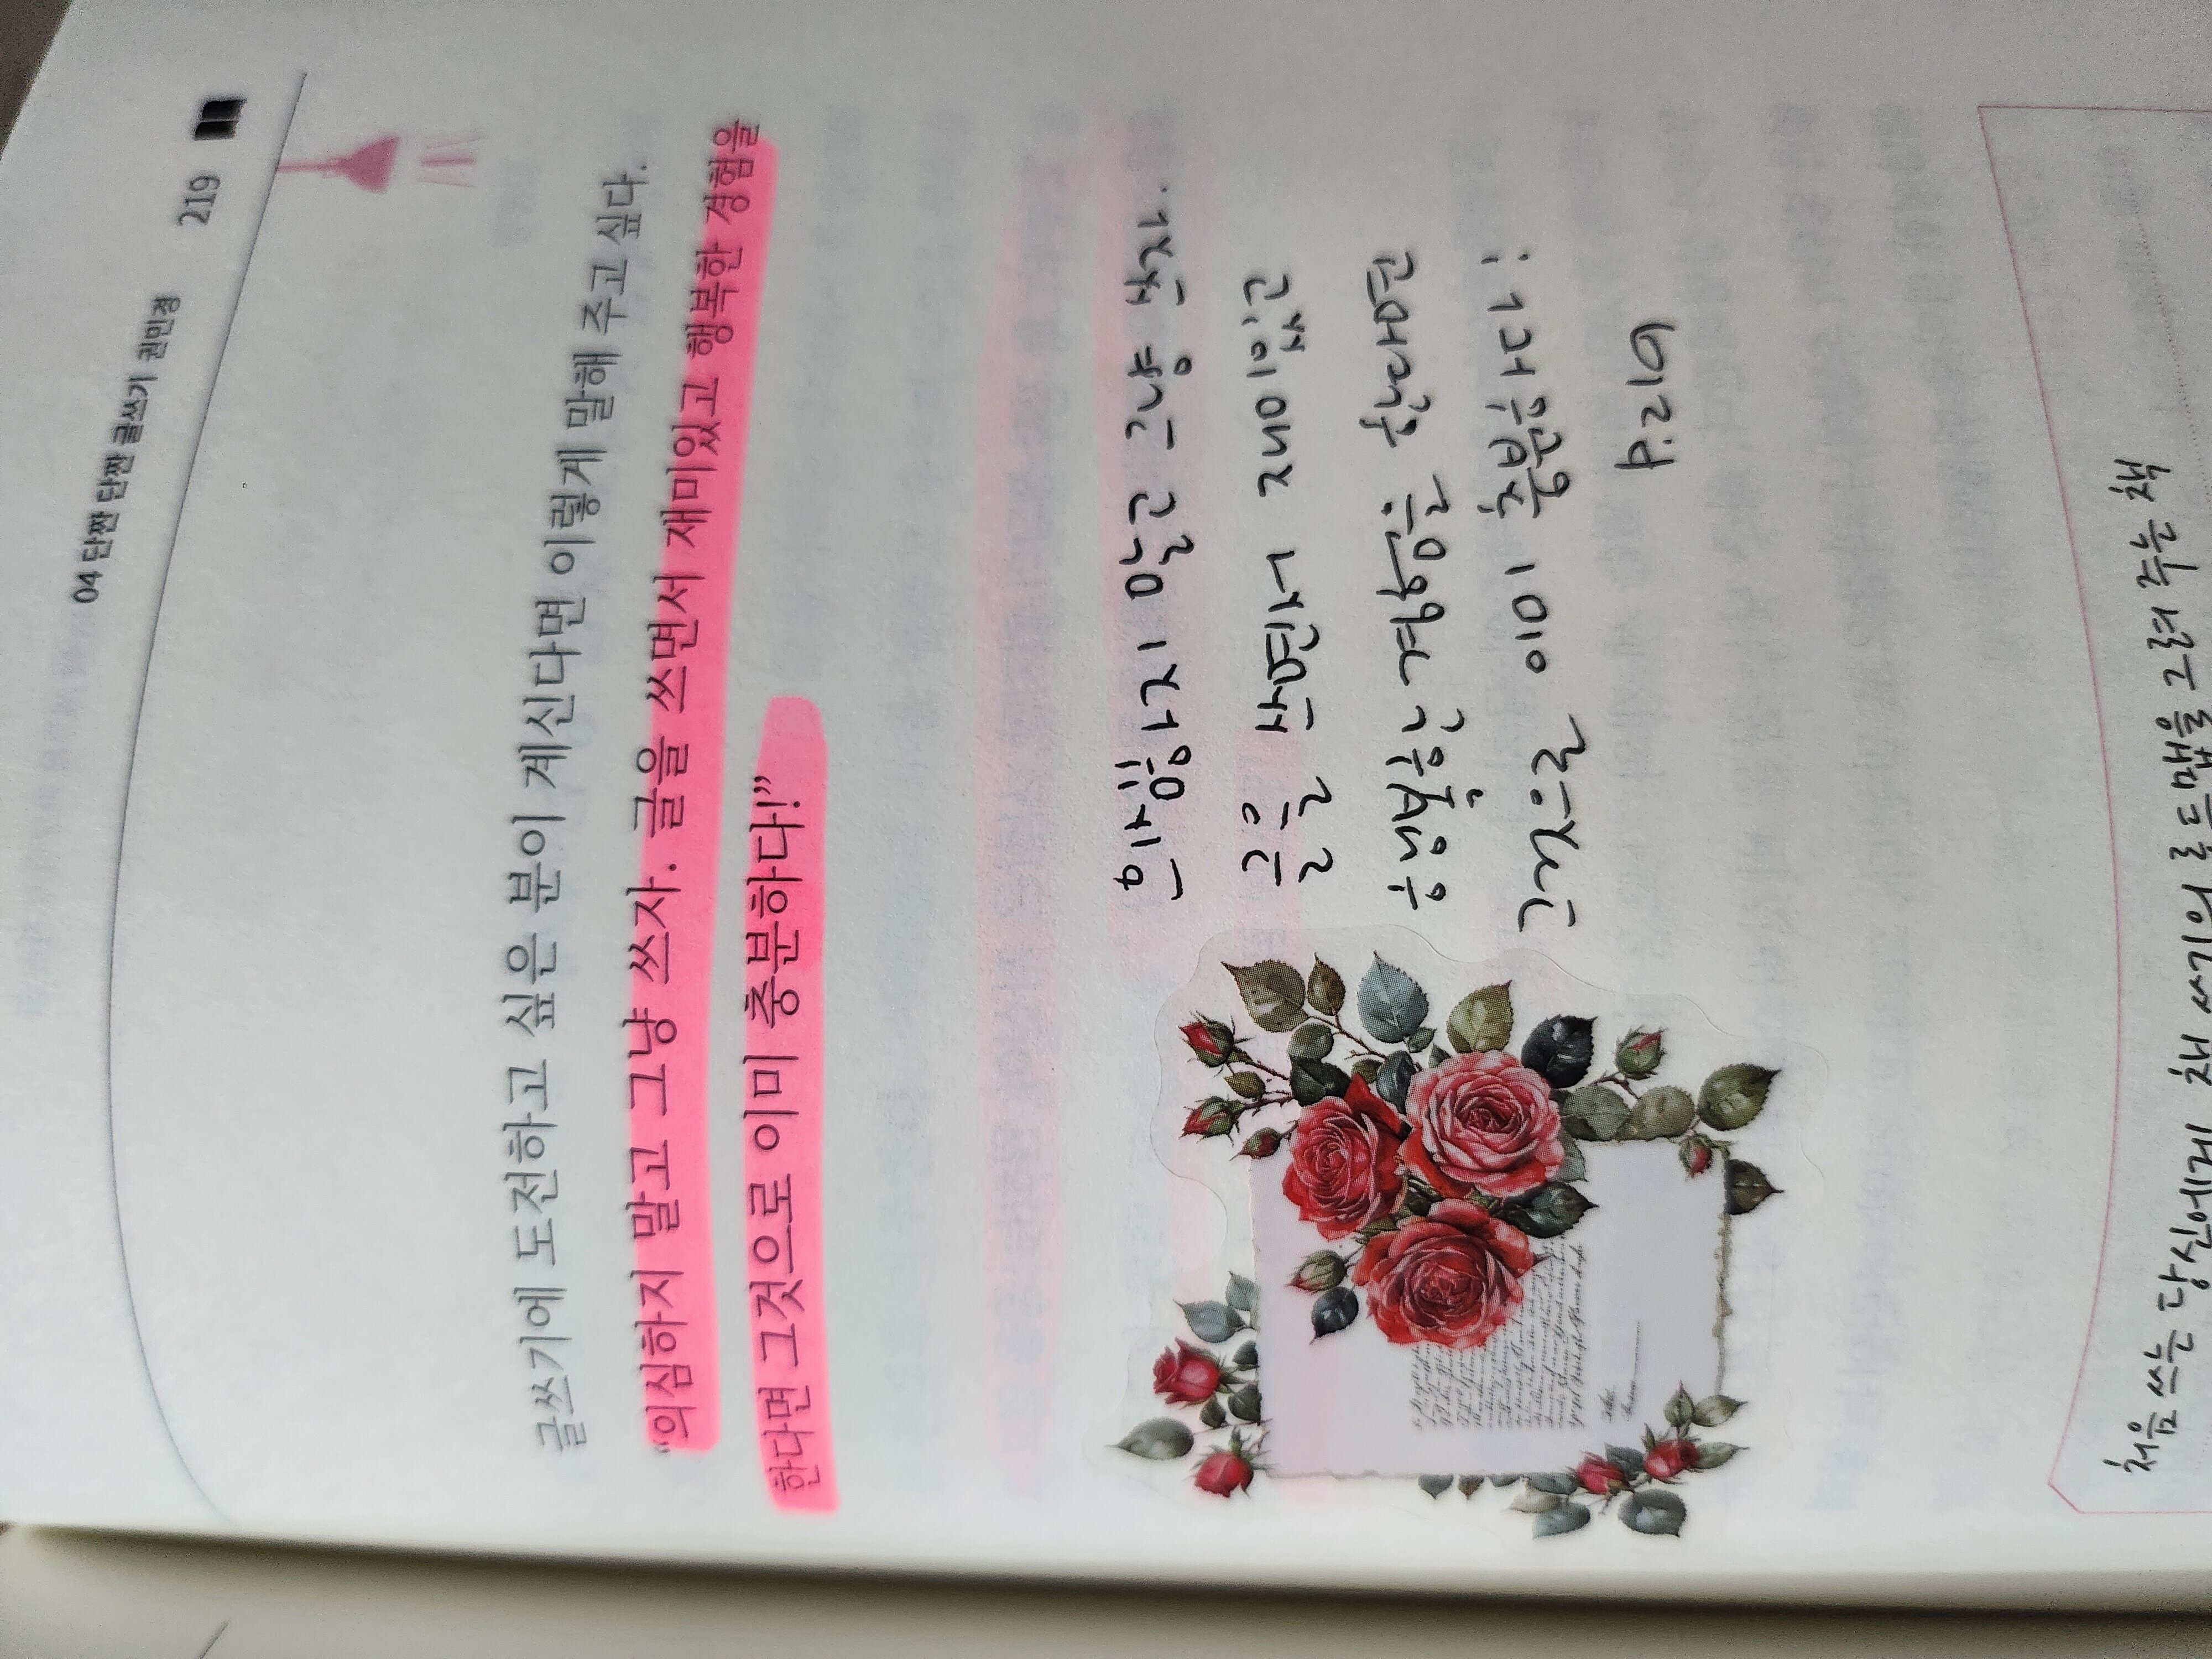 04 단짠 단짠 글쓰기 권민정 219
글쓰기에 도전하고 싶은 분이 계신다면 이렇게 말해 주고 싶다.
“의심하지 말고 그냥 쓰자. 글을 쓰면서 재미있고 행복한 경험을
한다면 그것으로 이미 충분하다!”
의심하지 말고 그냥 쓰자.
글을 쓰면서 재미있고
행복한 경험을 한다면
그것으로 이미 충분하다!
p.219
처음 쓰는 당신에게 책 쓰기의 로드맵을 그려 주는 책